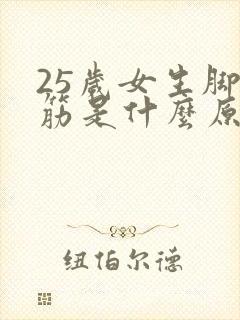 25歲女生脚
筋是什麼原
纽伯尔德